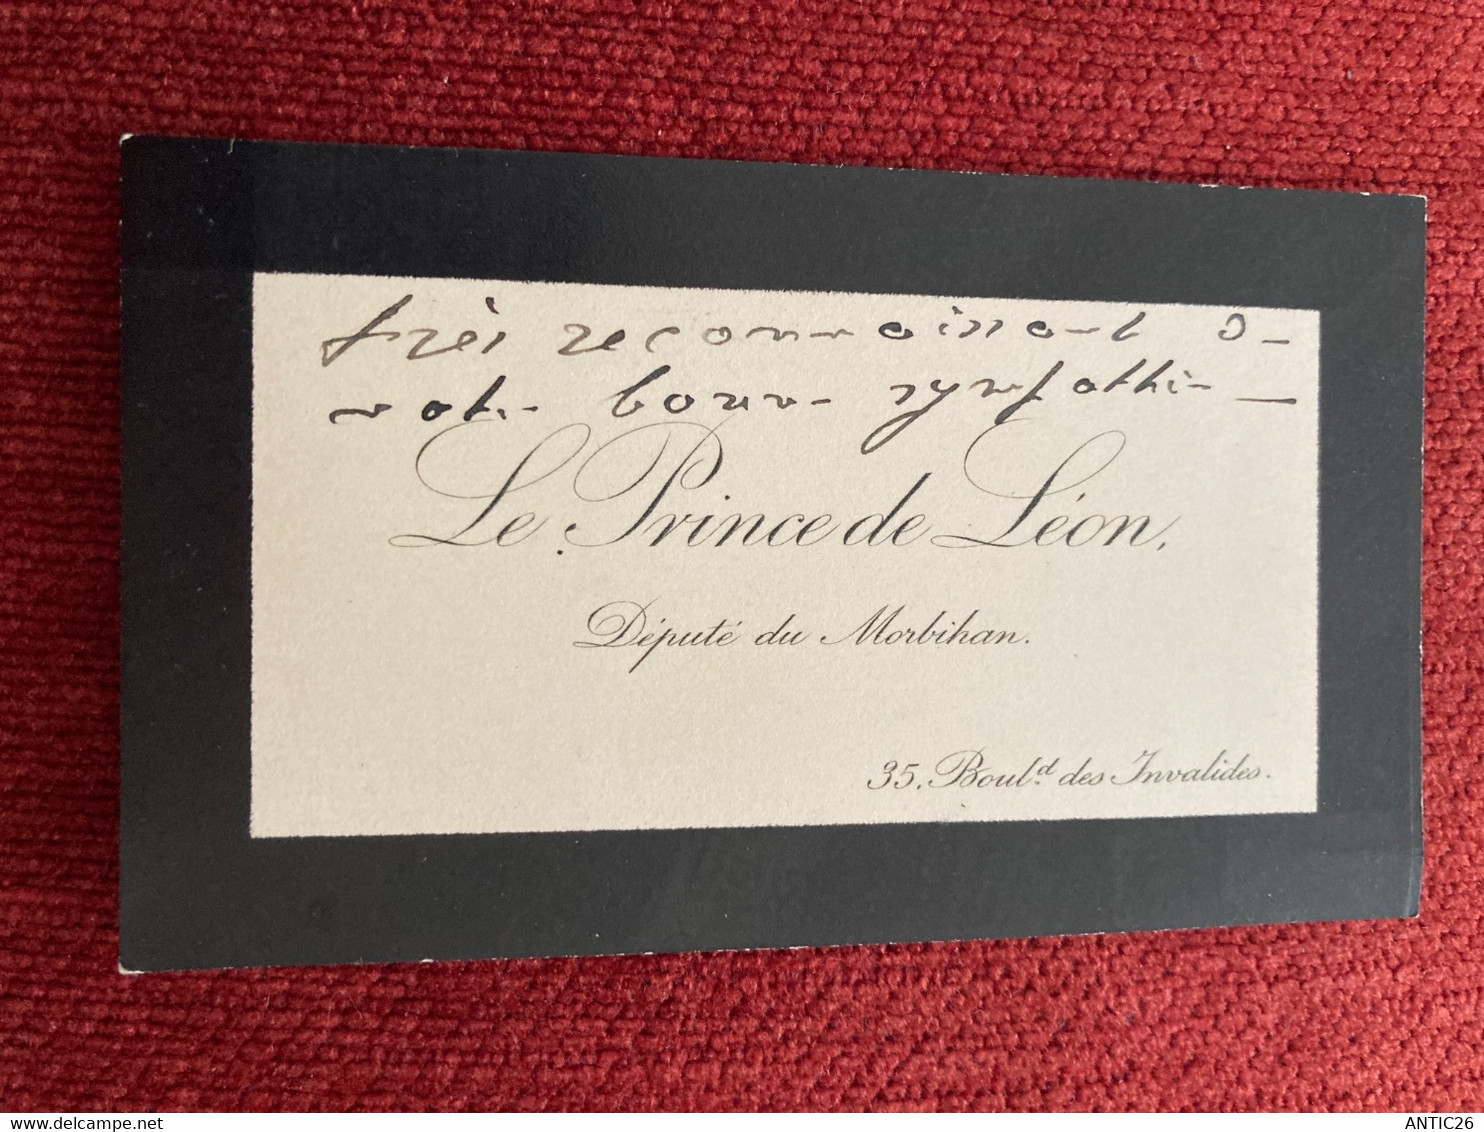 très reconnaissant
bonne sympathie
Le Prince de Léon,
Député du Morbihan.
35, Boul.d des Invalides.
ANTIC26